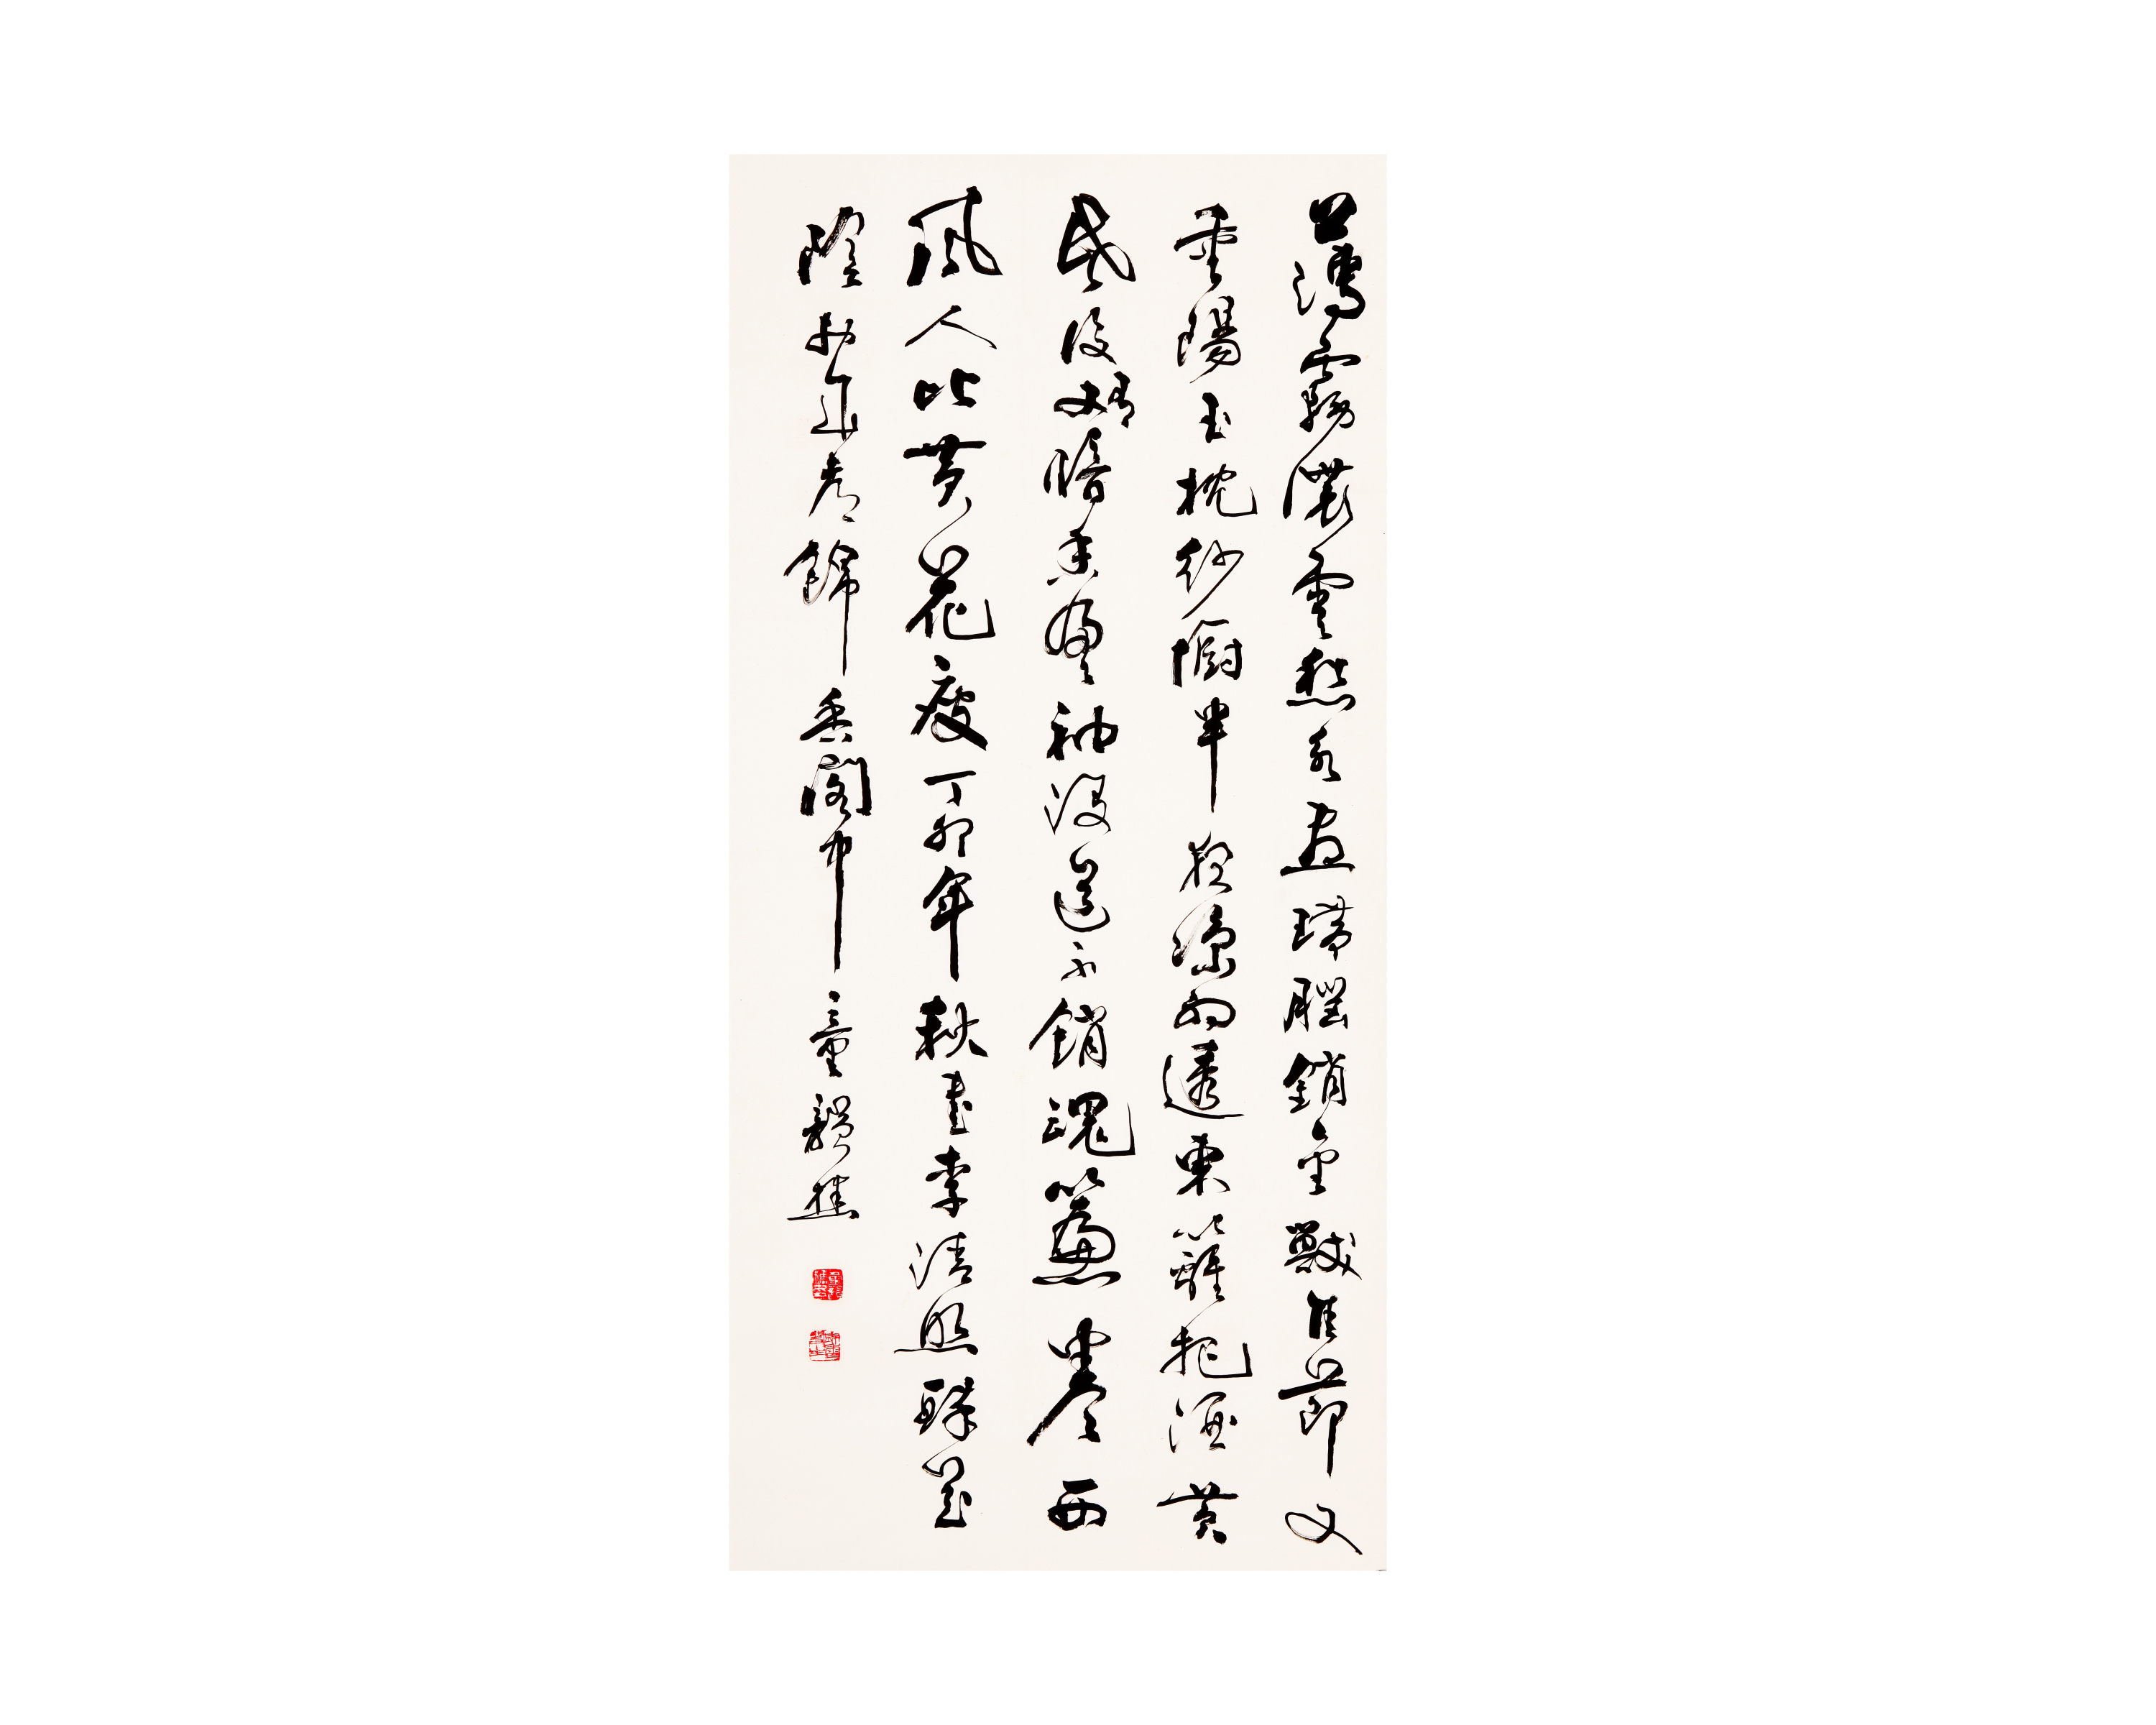 薄霧濃雲愁永晝瑞腦銷金獸佳節又
重陽玉枕紗幮半夜涼初透東籬把酒黃
昏後有暗香盈袖沒道不銷魂簾卷西
風人比黃花瘦丁卯年秋書李清照醉花
陰於錦香閣中童韻樵